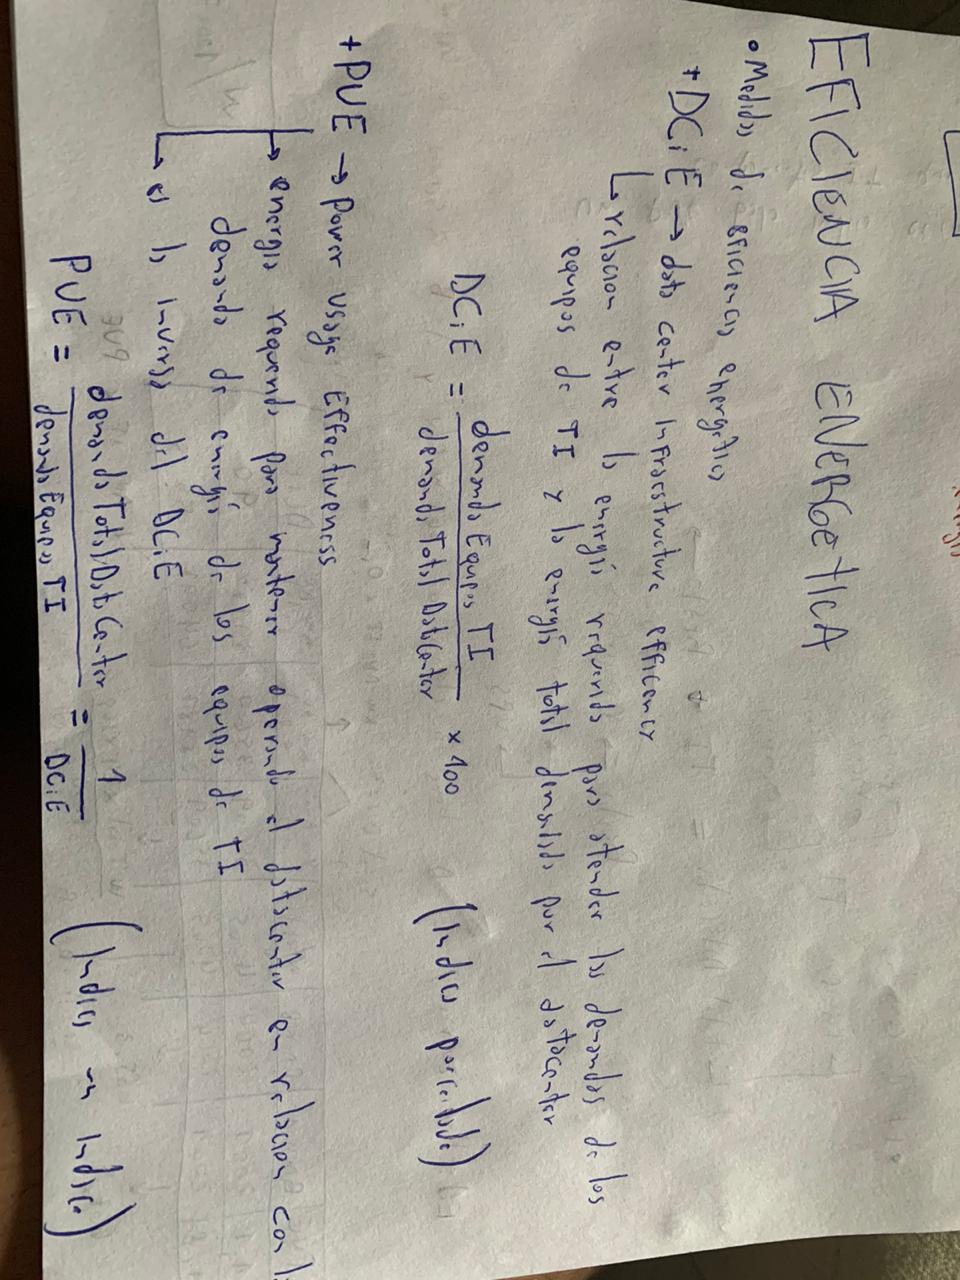 EFICIENCIA ENERGETICA
• Medidas de eficiencia energetica
+ DCiE → data center Infraestructure efficency
relacion entre la energia requerida para atender las demandas de los
equipos de TI y la energia total demandada por el datacenter
DCiE = demanda Equipos TI / demanda Total DataCenter × 100 (Indica porcentaje)
+ PUE → Power Usage Effectiveness
→ energia requerida para mantener operando el datacenter en relacion con l
demanda de energia de los equipos de TI
→ es la inversa del DCiE
PUE = demanda Total Data Center / demanda Equipos TI = 1 / DCiE (Indica un Indice)